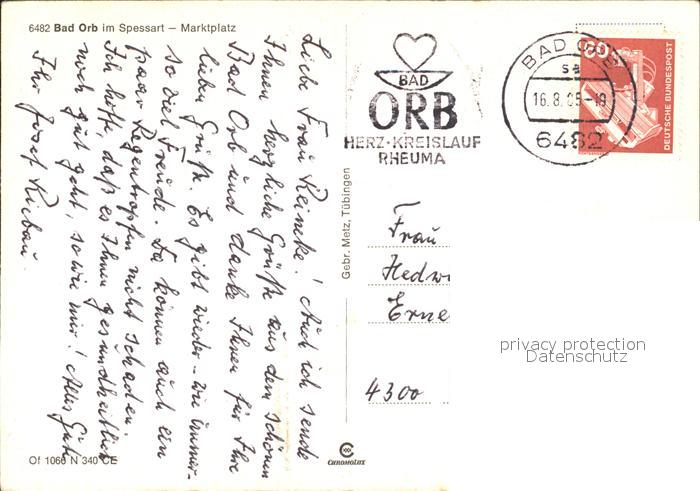 6482 Bad Orb im Spessart – Marktplatz
Liebe Frau Reineke! Auch ich sende
Ihnen herzliche Grüße aus dem schönen
Bad Orb und danke Ihnen für Ihre
lieben Grüße. Es gibt wieder – wie immer –
so viel Freude. Da können auch ein
paar Regentropfen nicht schaden.
Ich hoffe, daß es Ihnen gesundheitlich
noch gut geht, so wie mir! Alles Gute
Ihr Josef
Of 1066 N 340 CE
Gebr. Metz, Tübingen
CHROMOLUX
BAD
ORB
HERZ·KREISLAUF
RHEUMA
BAD ORB
sa
16.8.85-18
6482
60
DEUTSCHE BUNDESPOST
Frau
Hedwi
Erne
4300
privacy protection
Datenschutz